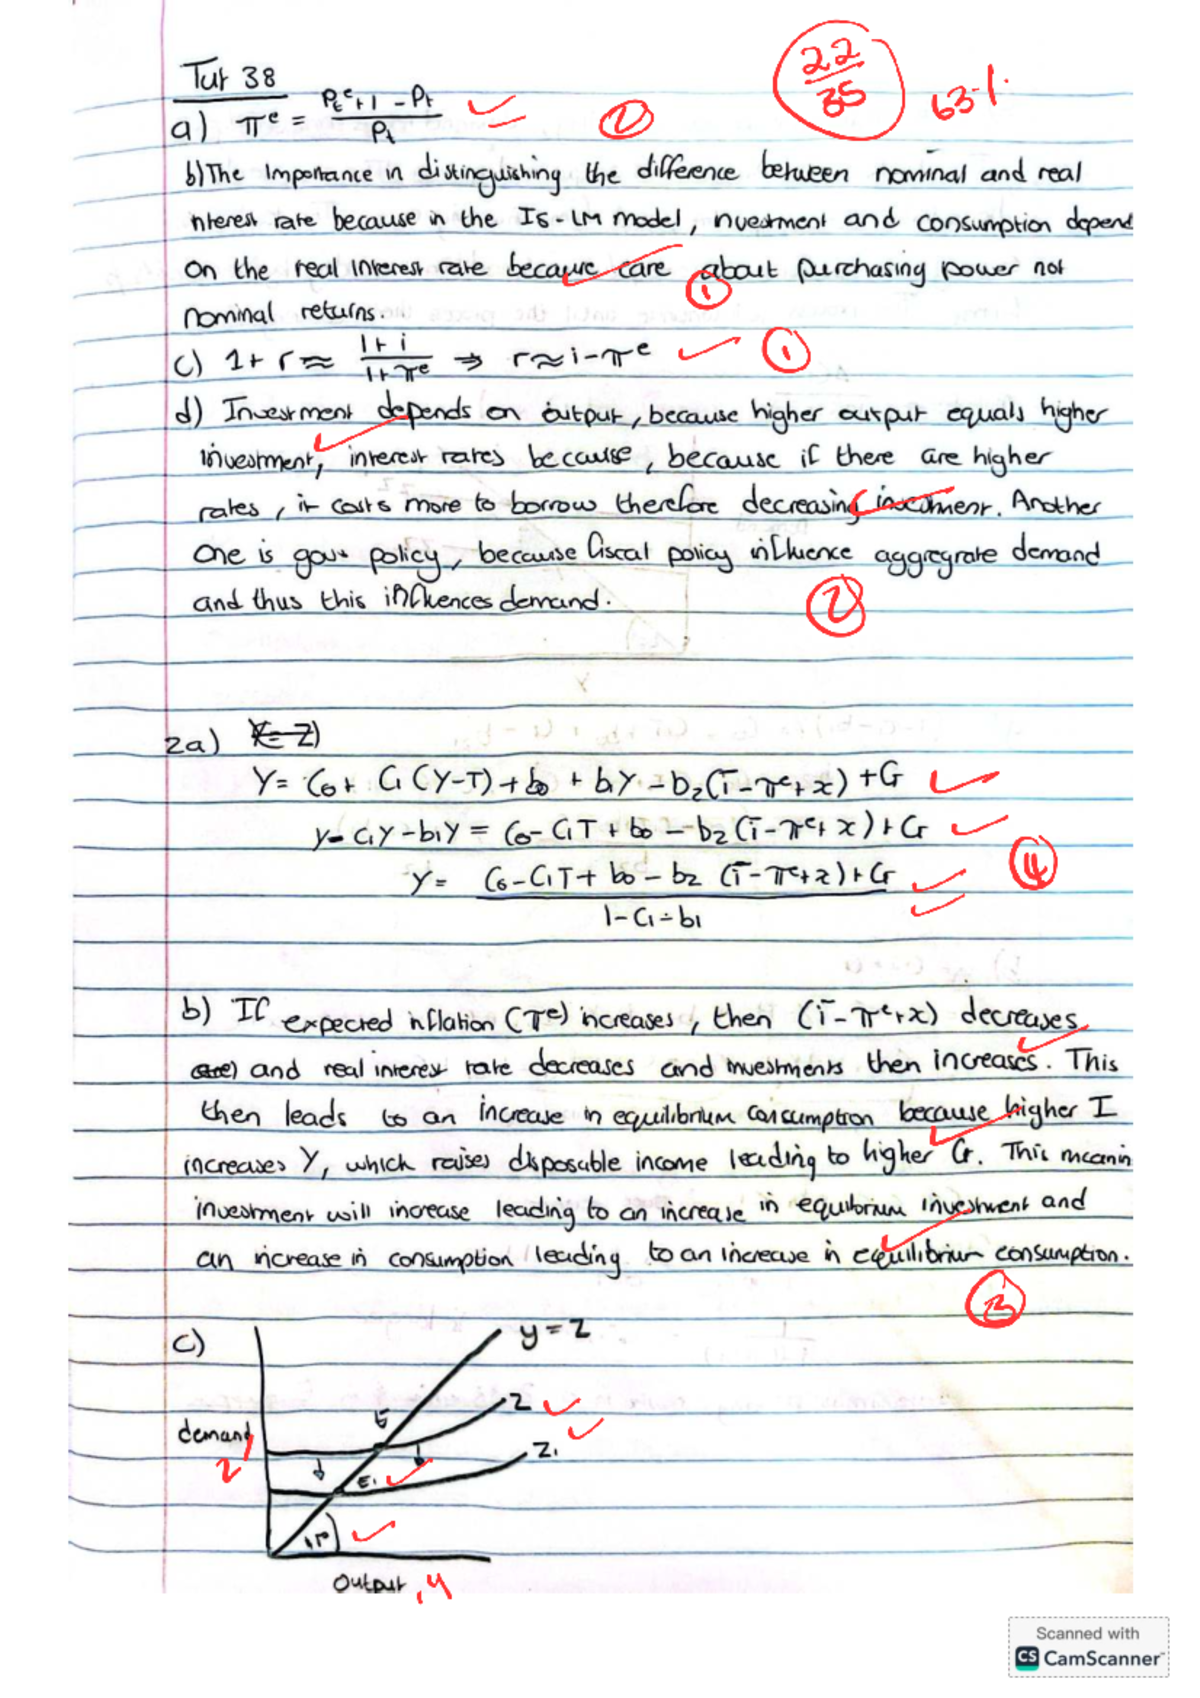 Tut 38
22/35
63%
a) πᵉ = (Pₜᵉ+1 - Pₜ) / Pₜ
2
b) The Importance in distinguishing the difference between nominal and real
nterest rate because in the IS-LM model, nvestment and consumption depend
on the real Interest rate because care about purchasing power not
1
nominal returns.
c) 1 + r ≈ (1 + i) / (1 + πᵉ) ⇒ r ≈ i - πᵉ
1
d) Investment depends on output, because higher output equals higher
investment, interest rates because, because if there are higher
rates, it costs more to borrow therefore decreasing investment. Another
one is govt policy, because fiscal policy influence aggregrate demand
and thus this influences demand.
2
2a)
Y = C₀ + C₁ (Y-T) + b₀ + b₁Y - b₂(ī - πᵉ + x) + G
y - C₁Y - b₁Y = C₀ - C₁T + b₀ - b₂ (ī - πᵉ + x) + G
4
Y = (C₀ - C₁T + b₀ - b₂ (ī - πᵉ + x) + G) / (1 - C₁ - b₁)
b) If expected inflation (πᵉ) increases, then (ī - πᵉ + x) decreases
and real interest rate decreases and nvestments then increases. This
then leads to an increase in equilibrium consumption because higher I
increases Y, which raises disposable income leading to higher G. This meanin
investment will increase leading to an increase in equilibrium investment and
an increase in consumption leading to an increase in equilibrium consumption.
3
c)
y = Z
E
Z
demand
Z
Z₁
E₁
Output
, Y
Scanned with
CS CamScanner